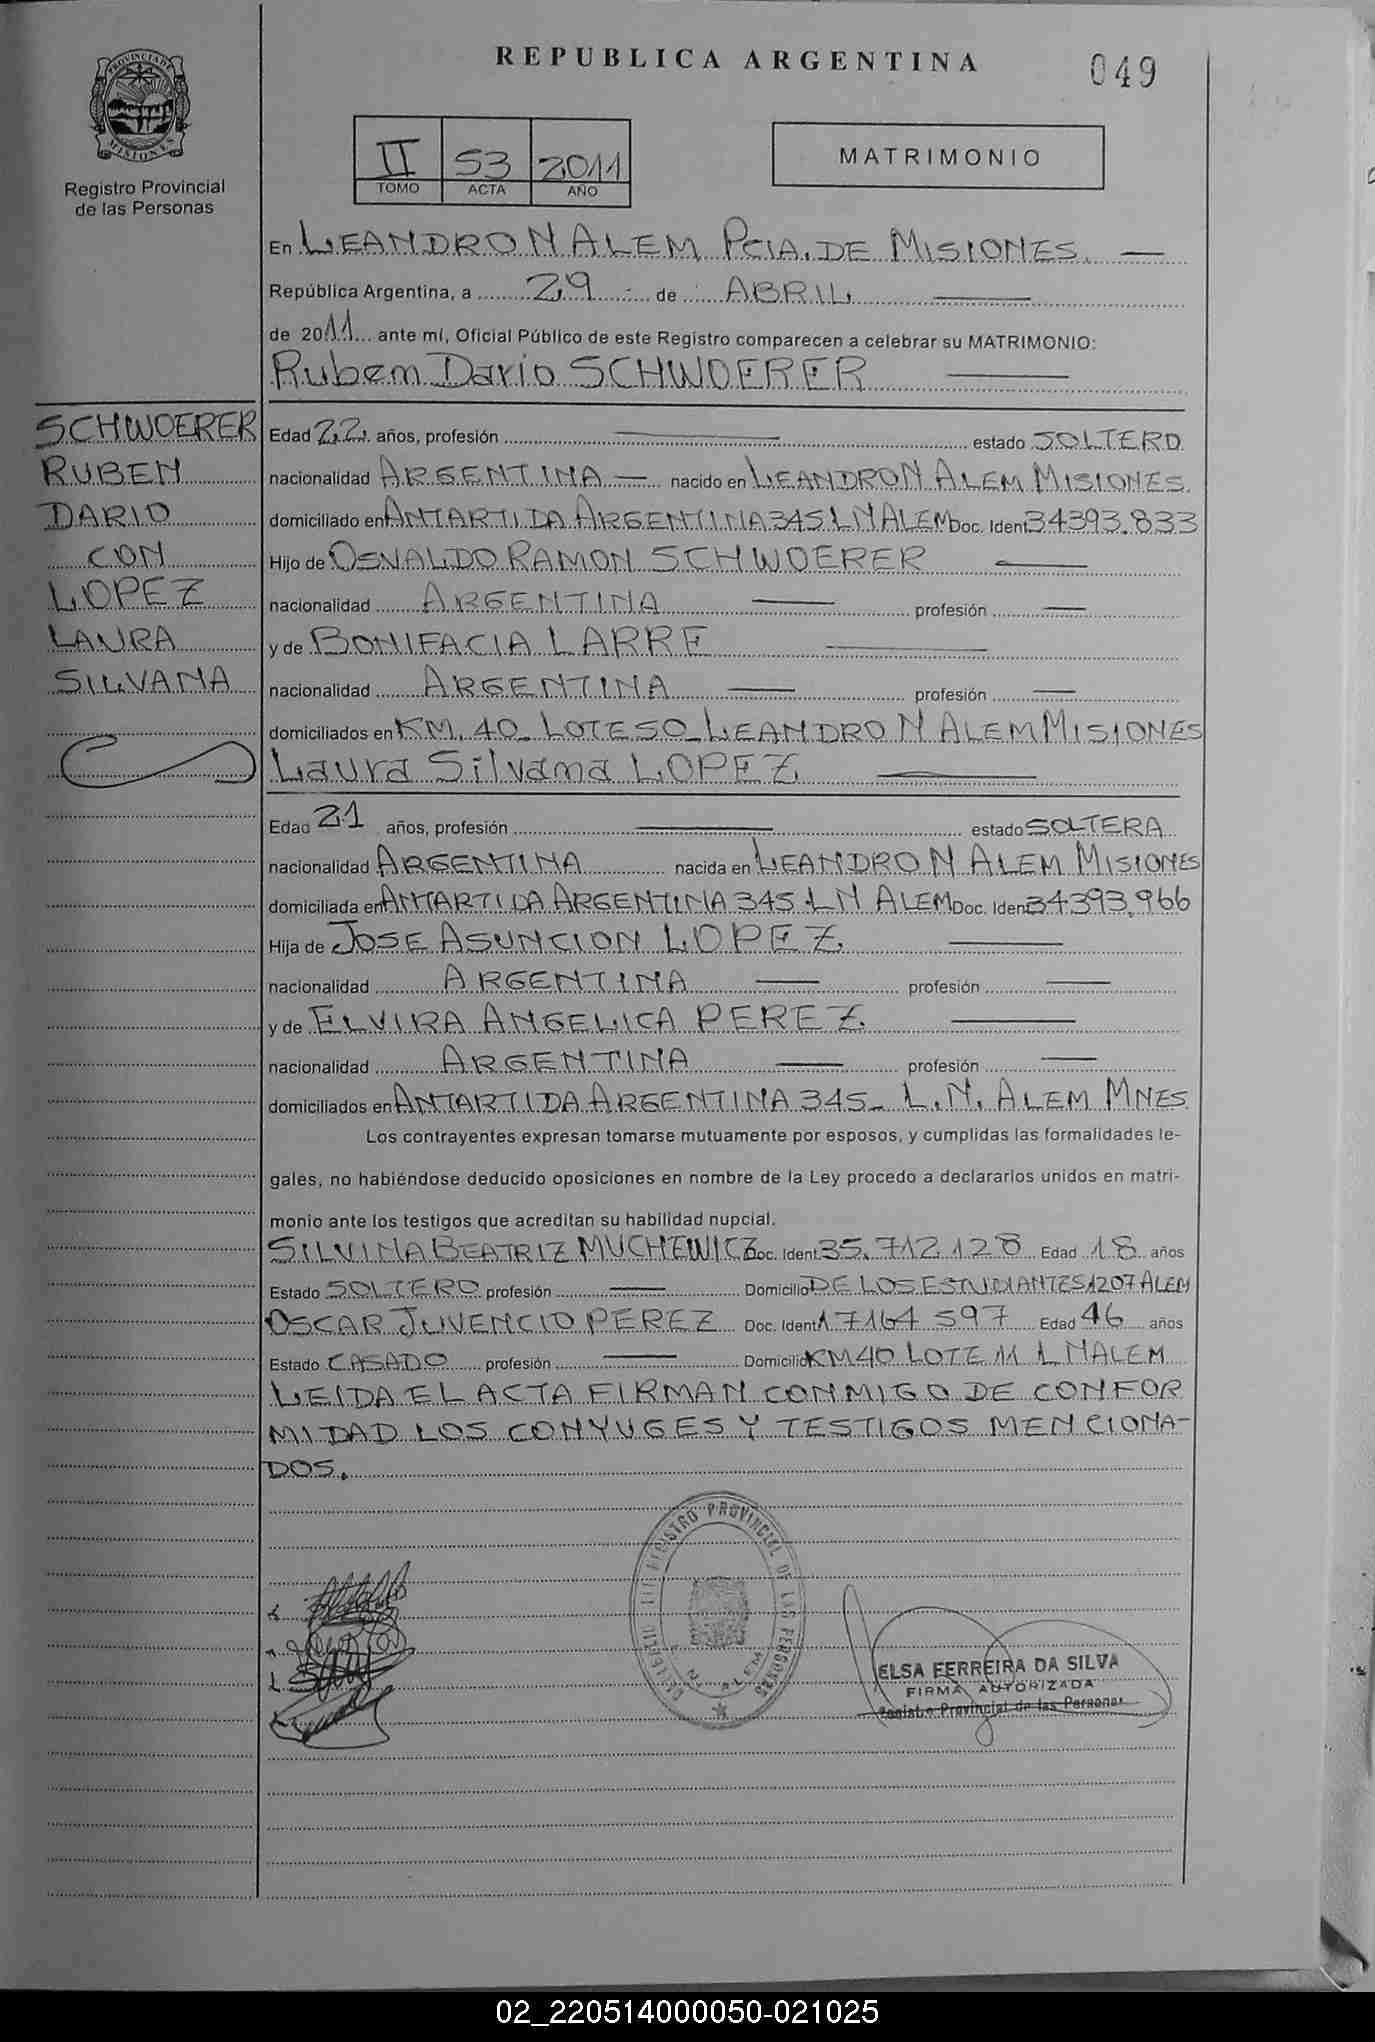 REPUBLICA ARGENTINA
049
PROVINCIA DE
MISIONES
Registro Provincial
de las Personas
II 53 2011
TOMO ACTA AÑO
MATRIMONIO
En LEANDRO N ALEM PCIA. DE MISIONES. —
República Argentina, a 29 - de ABRIL —
de 2011 ante mí, Oficial Público de este Registro comparecen a celebrar su MATRIMONIO:
Ruben Dario SCHWOERER —
SCHWOERER
RUBEN
DARIO
CON
LOPEZ
LAURA
SILVANA
Edad 22 años, profesión — estado SOLTERO
nacionalidad ARGENTINA — nacido en LEANDRO N ALEM MISIONES
domiciliado en ANTARTIDA ARGENTINA 345 L N ALEM Doc. Ident 34393.833
Hijo de OSVALDO RAMON SCHWOERER —
nacionalidad ARGENTINA — profesión —
y de BONIFACIA LARRE —
nacionalidad ARGENTINA — profesión —
domiciliados en KM. 40_ LOTE 50_ LEANDRO N ALEM MISIONES
Laura Silvana LOPEZ —
Edad 21 años, profesión — estado SOLTERA
nacionalidad ARGENTINA nacida en LEANDRO N ALEM MISIONES
domiciliada en ANTARTIDA ARGENTINA 345 LN ALEM Doc. Ident 34393.966
Hija de JOSE ASUNCION LOPEZ —
nacionalidad ARGENTINA — profesión —
y de ELVIRA ANGELICA PEREZ —
nacionalidad ARGENTINA — profesión —
domiciliados en ANTARTIDA ARGENTINA 345_ L.N. ALEM MNES
Los contrayentes expresan tomarse mutuamente por esposos, y cumplidas las formalidades le-
gales, no habiéndose deducido oposiciones en nombre de la Ley procedo a declararlos unidos en matri-
monio ante los testigos que acreditan su habilidad nupcial.
SILVINA BEATRIZ MUCHEWICZ Doc. Ident 35.712.128 Edad 18 años
Estado SOLTERO profesión — Domicilio DE LOS ESTUDIANTES 1207 ALEM
OSCAR JUVENCIO PEREZ Doc. Ident 17164 597 Edad 46 años
Estado CASADO profesión — Domicilio KM40 LOTE 11 L N ALEM
LEIDA EL ACTA FIRMAN CONMIGO DE CONFOR
MIDAD LOS CONYUGES Y TESTIGOS MENCIONA-
DOS.
REGISTRO PROVINCIAL DE LAS PERSONAS
L. N. ALEM
ELSA FERREIRA DA SILVA
FIRMA AUTORIZADA
Registro Provincial de las Personas
02_220514000050-021025